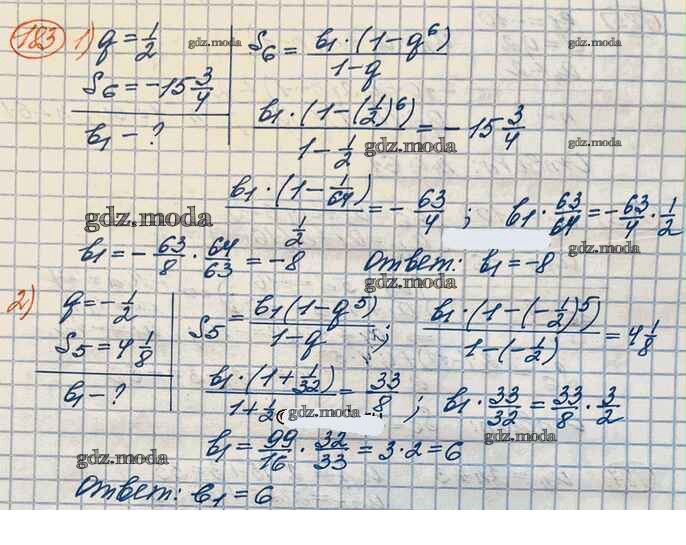 183 1) q = 1/2
S₆ = -15 3/4
b₁ - ?
S₆ = b₁·(1-q⁶) / 1-q
b₁·(1-(1/2)⁶) / 1-1/2 = -15 3/4
b₁·(1-1/64) / 1/2 = -63/4 ; b₁·63/64 = -63/4·1/2
b₁ = -63/8·64/63 = -8 Ответ: b₁ = -8
2) q = -1/2
S₅ = 4 1/8
b₁ - ?
S₅ = b₁(1-q⁵) / 1-q ; b₁·(1-(-1/2)⁵) / 1-(-1/2) = 4 1/8
b₁·(1+1/32) / 1+1/2 = 33/8 ; b₁·33/32 = 33/8·3/2
b₁ = 99/16·32/33 = 3·2 = 6
Ответ: b₁ = 6
gdz.moda
gdz.moda
gdz.moda
gdz.moda
gdz.moda
gdz.moda
gdz.moda
gdz.moda
gdz.moda
gdz.moda
gdz.moda
gdz.moda